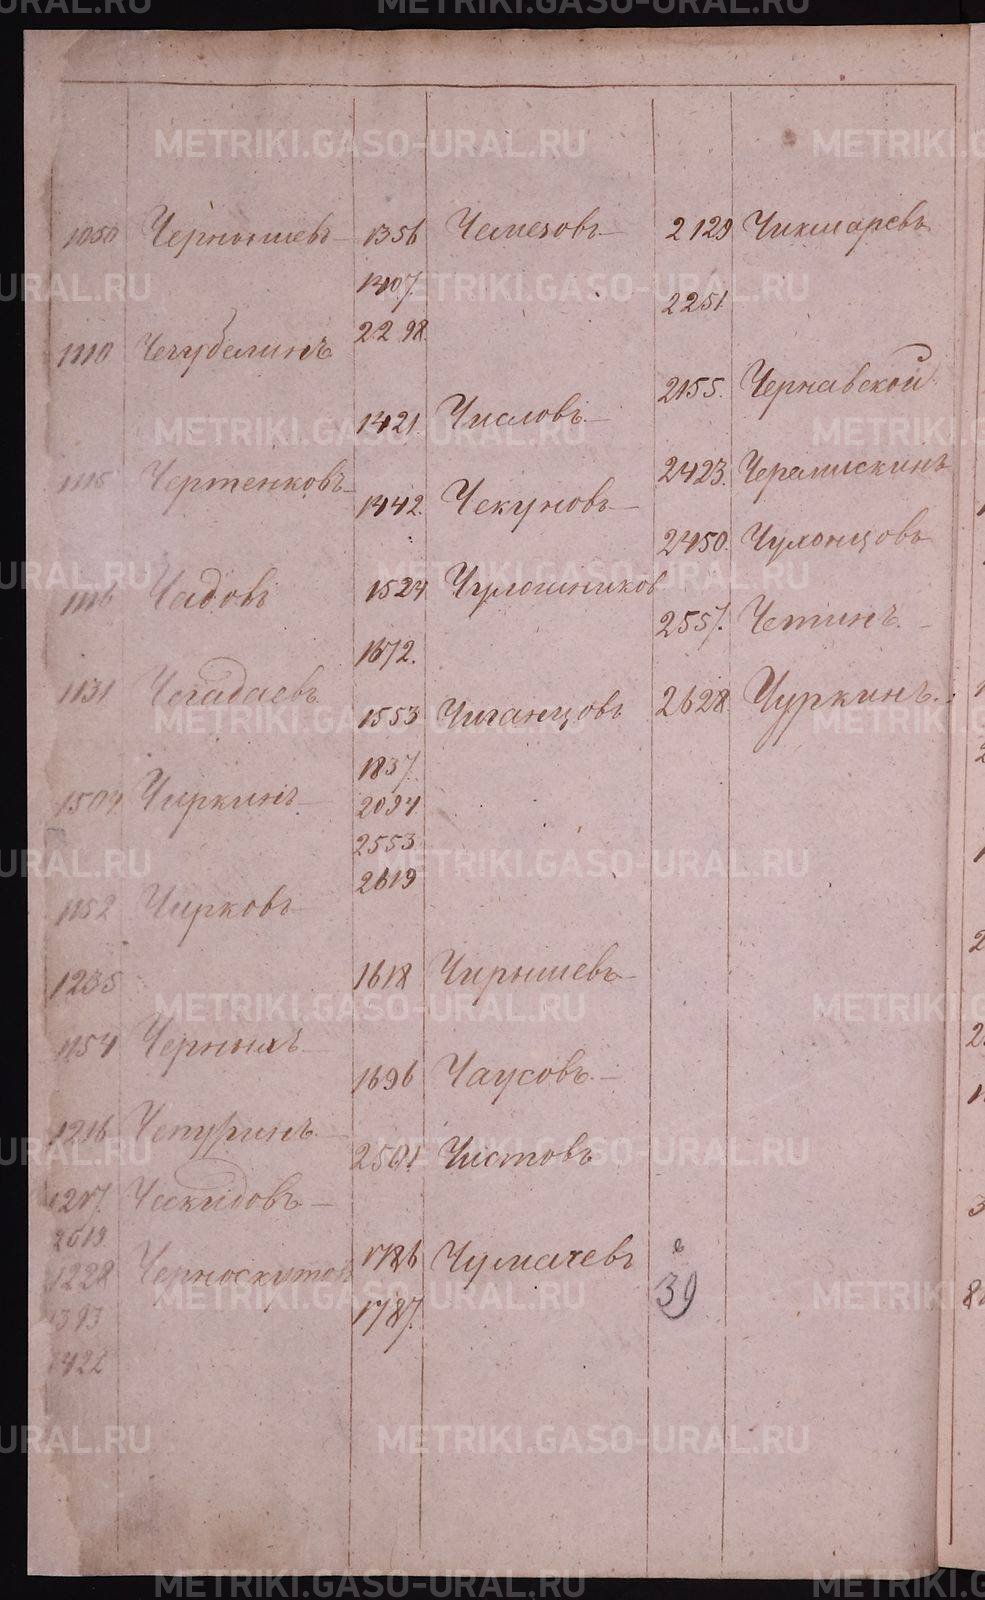 1050 Чернышевъ
1110 Чечубелинъ
1115 Чертенковъ
1116 Чадовъ
1131 Чегадаевъ
1504 Чиркинъ
1152 Чирковъ
1235
1154 Черныхъ
1216 Чепуринъ
1217. Чекидовъ
2619.
1228 Черноскутовъ
1393
1422
1356 Чемезовъ
1407.
2298.
1421. Числовъ
1442. Чекуновъ
1524 Чулошников
1672.
1553 Чиганцовъ
1837.
2094
2553
2619
1618 Чирышевъ
1696 Чаусовъ
2501 Чистовъ
1786 Чумачевъ
1787.
2129 Чикмаревъ
2251
2155. Чернавской
2423. Черемискинъ
2450. Чухонцовъ
2557. Четинъ
2628 Чуркинъ.
39
METRIKI.GASO-URAL.RU